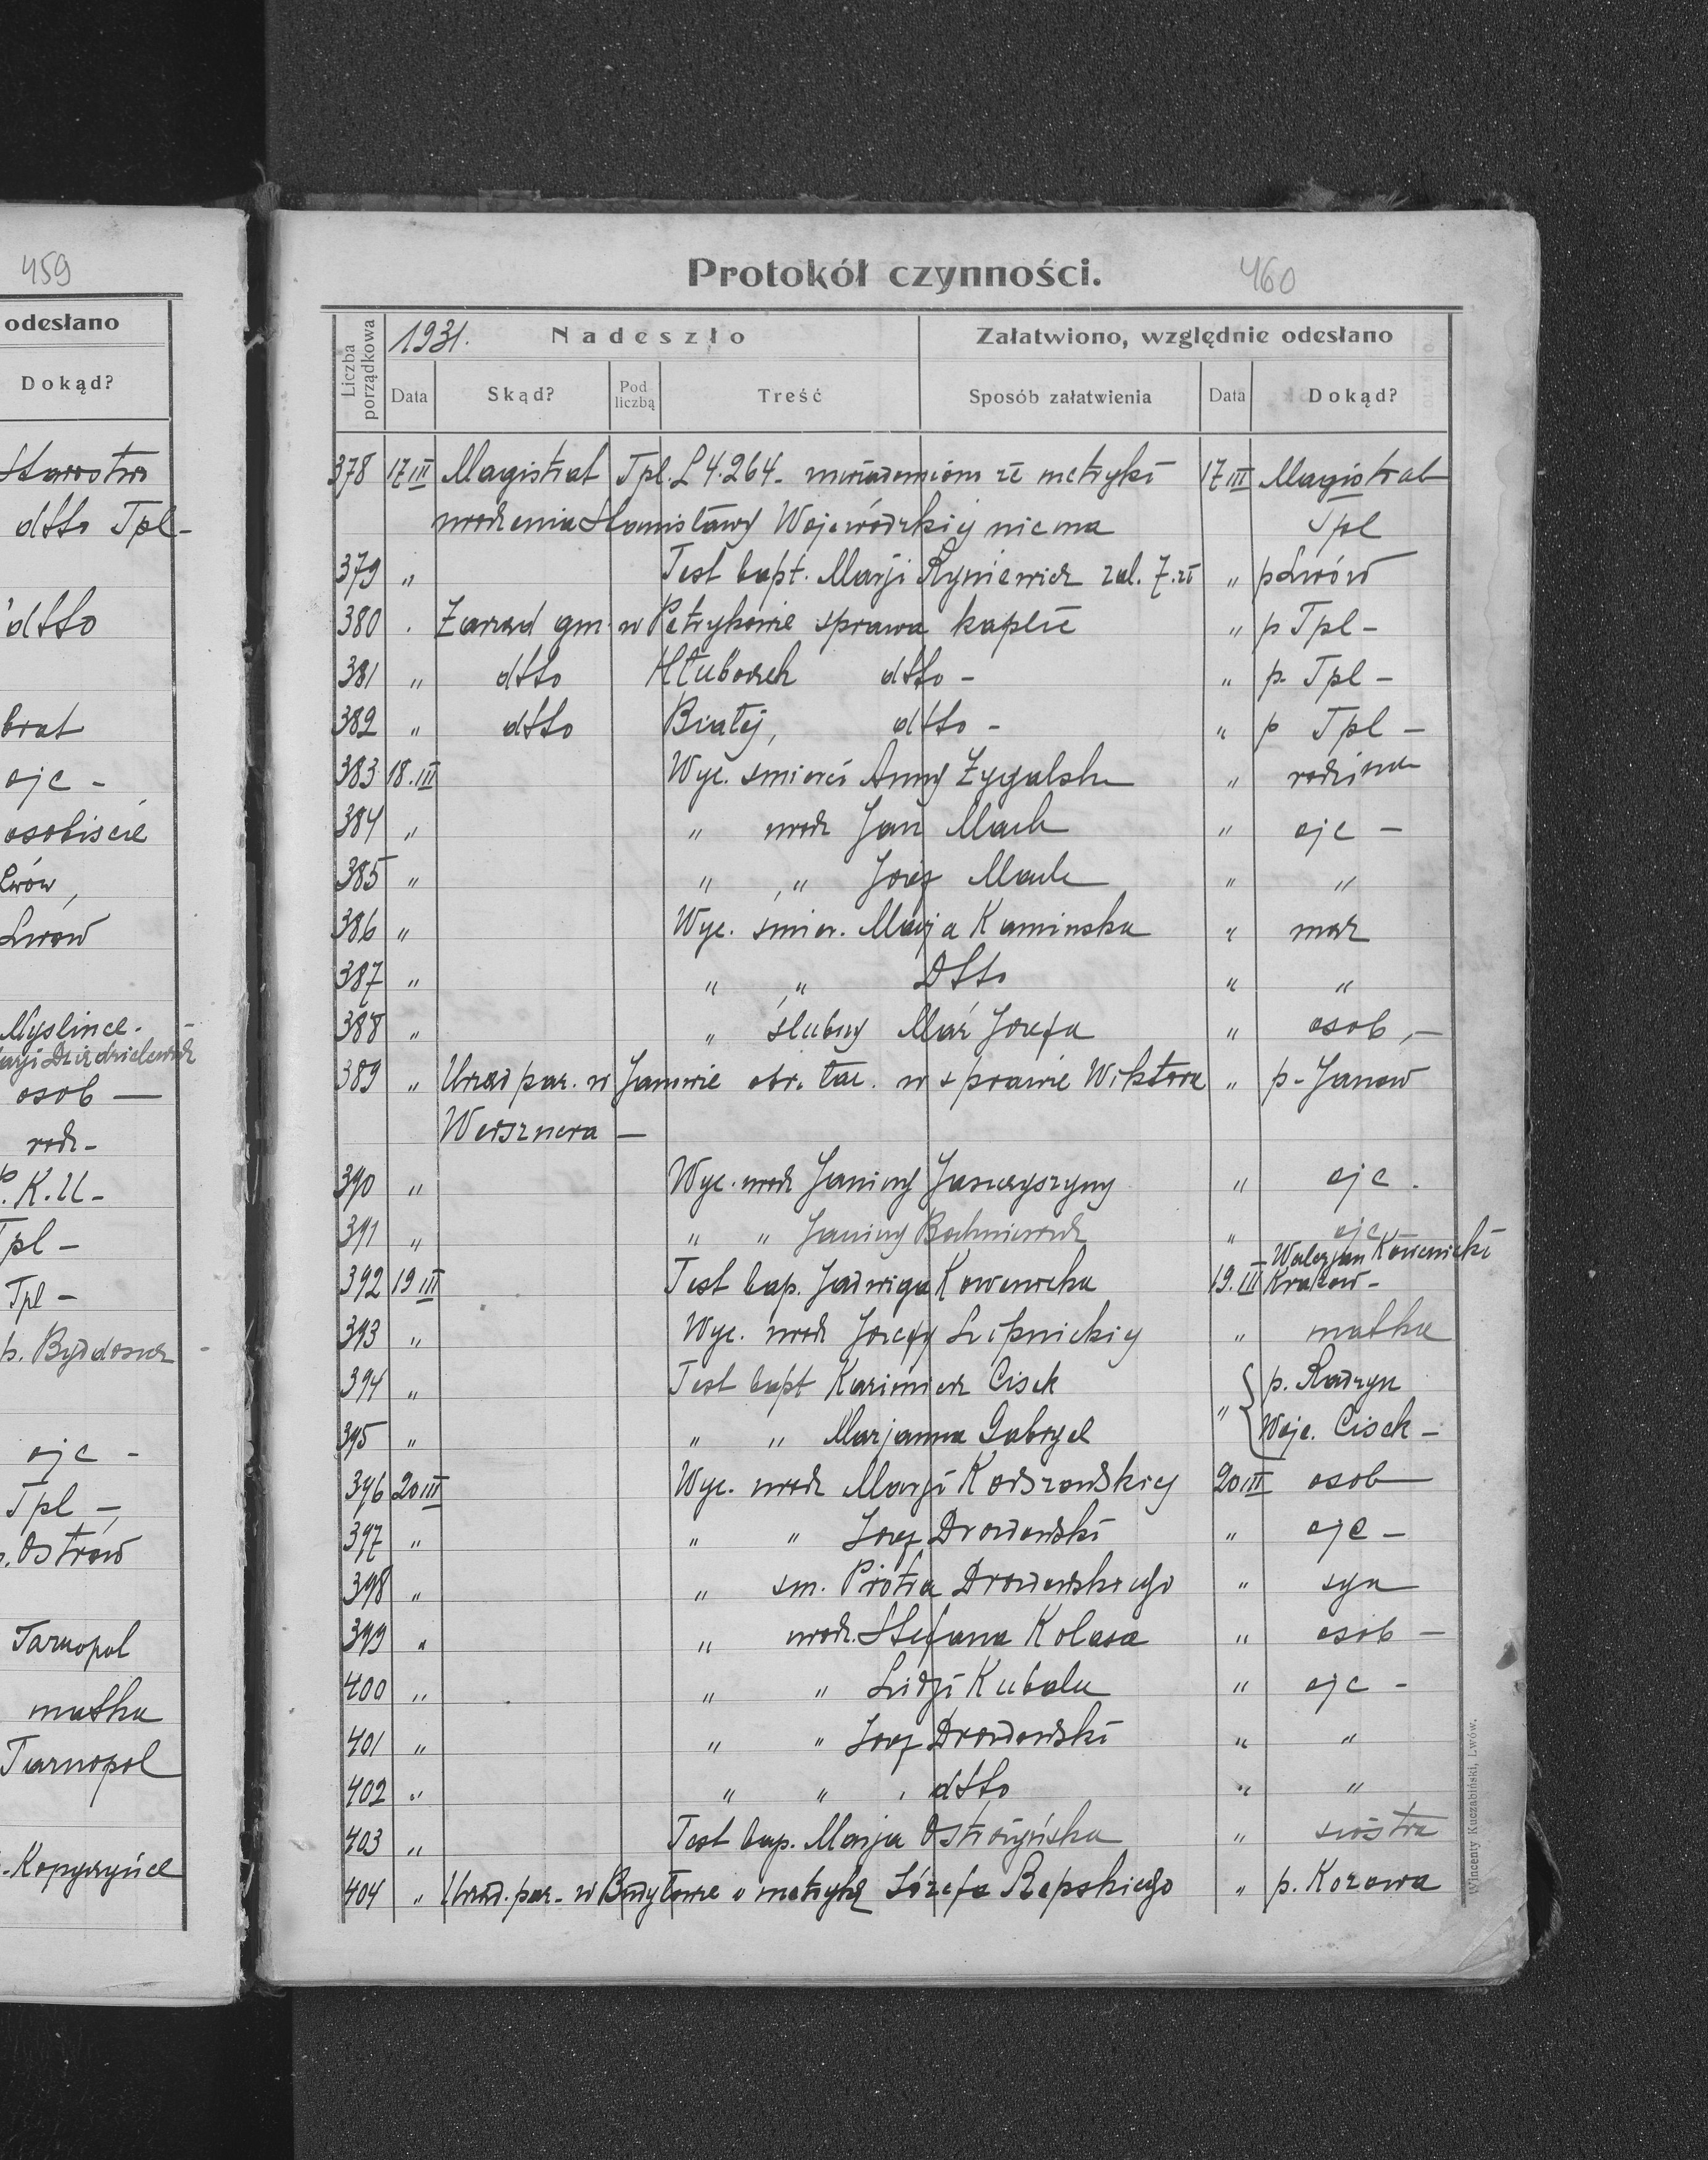 459
odesłano
Dokąd?
Starostwo
dtto Tpl-
dtto
brat
ojc -
osobiscie
Lwów,
Lwow
Myslince.
osob —
rodz-
P.K.U-
Tpl -
Tpl -
p. Bydgoszcz
ojc -
Tpl -
p. Ostrów
Tarnopol
matka
Tarnopol
Kopyczyńce
Protokół czynności.
460
Liczba porządkowa
1931.
Nadeszło
Załatwiono, względnie odesłano
Data
Skąd?
Pod liczbą
Treść
Sposób załatwienia
Data
Dokąd?
378 17 III Magistrat Tpl. L 4.264 - uwiadomiono że metryki 17 III Magistrat
urodzenia Stanisławy Wojewódzkiej niema Tpl
379 " Test bapt. Marji Ryniewicz zal. 7.zł " p Lwów
380 . Zarząd gm. w Petrykowie sprawa kaplic " p Tpl -
381 " dtto Hłuboczek dtto - " p. Tpl -
382 " dtto Białej, dtto - " p Tpl -
383 18.III Wyc. smierci Anny Zygalska " rodzina
384 " " urodz Jan Mach " ojc -
385 " " " Józef Mach " "
386 " Wyc. śmier. Marja Kaminska " mąż
387 " " " Dtto " "
388 " " ślubny Józefa " osob, -
389 " Urząd par. w Janowie obr. łac. w sprawie Wiktora " p. Janow
Weisznera —
390 " Wyc. urodz Janiny " ojc .
391 " " " Janiny " ojc -
392 19 III Test bap. Jadwiga 19. III Walerjan
Krakow -
393 " Wyc. urodz Józefy Lipnickiej " matka
394 " Test bapt Kazimierz Cisek " { p. Radzyn
395 " " " Marjanna Gabryel Wojc. Cisek -
396 20 III Wyc. urodz Marji 20 III osob
397 " " " Józef Drozdowski " ojc -
398 " " sm. Piotra Drozdowskiego " syn
399 " " urodz. Stefana Kolasa " osob -
400 " " " Lidji Kubala " ojc -
401 " " " Józef Drozdowski " "
402 " " " . dtto " "
403 " Test bap. Marja " siostra
404 " Urząd. par. w Budyłowie o metrykę Józefa Repskiego " p. Kozowa
Wincenty Kuczabiński, Lwów.